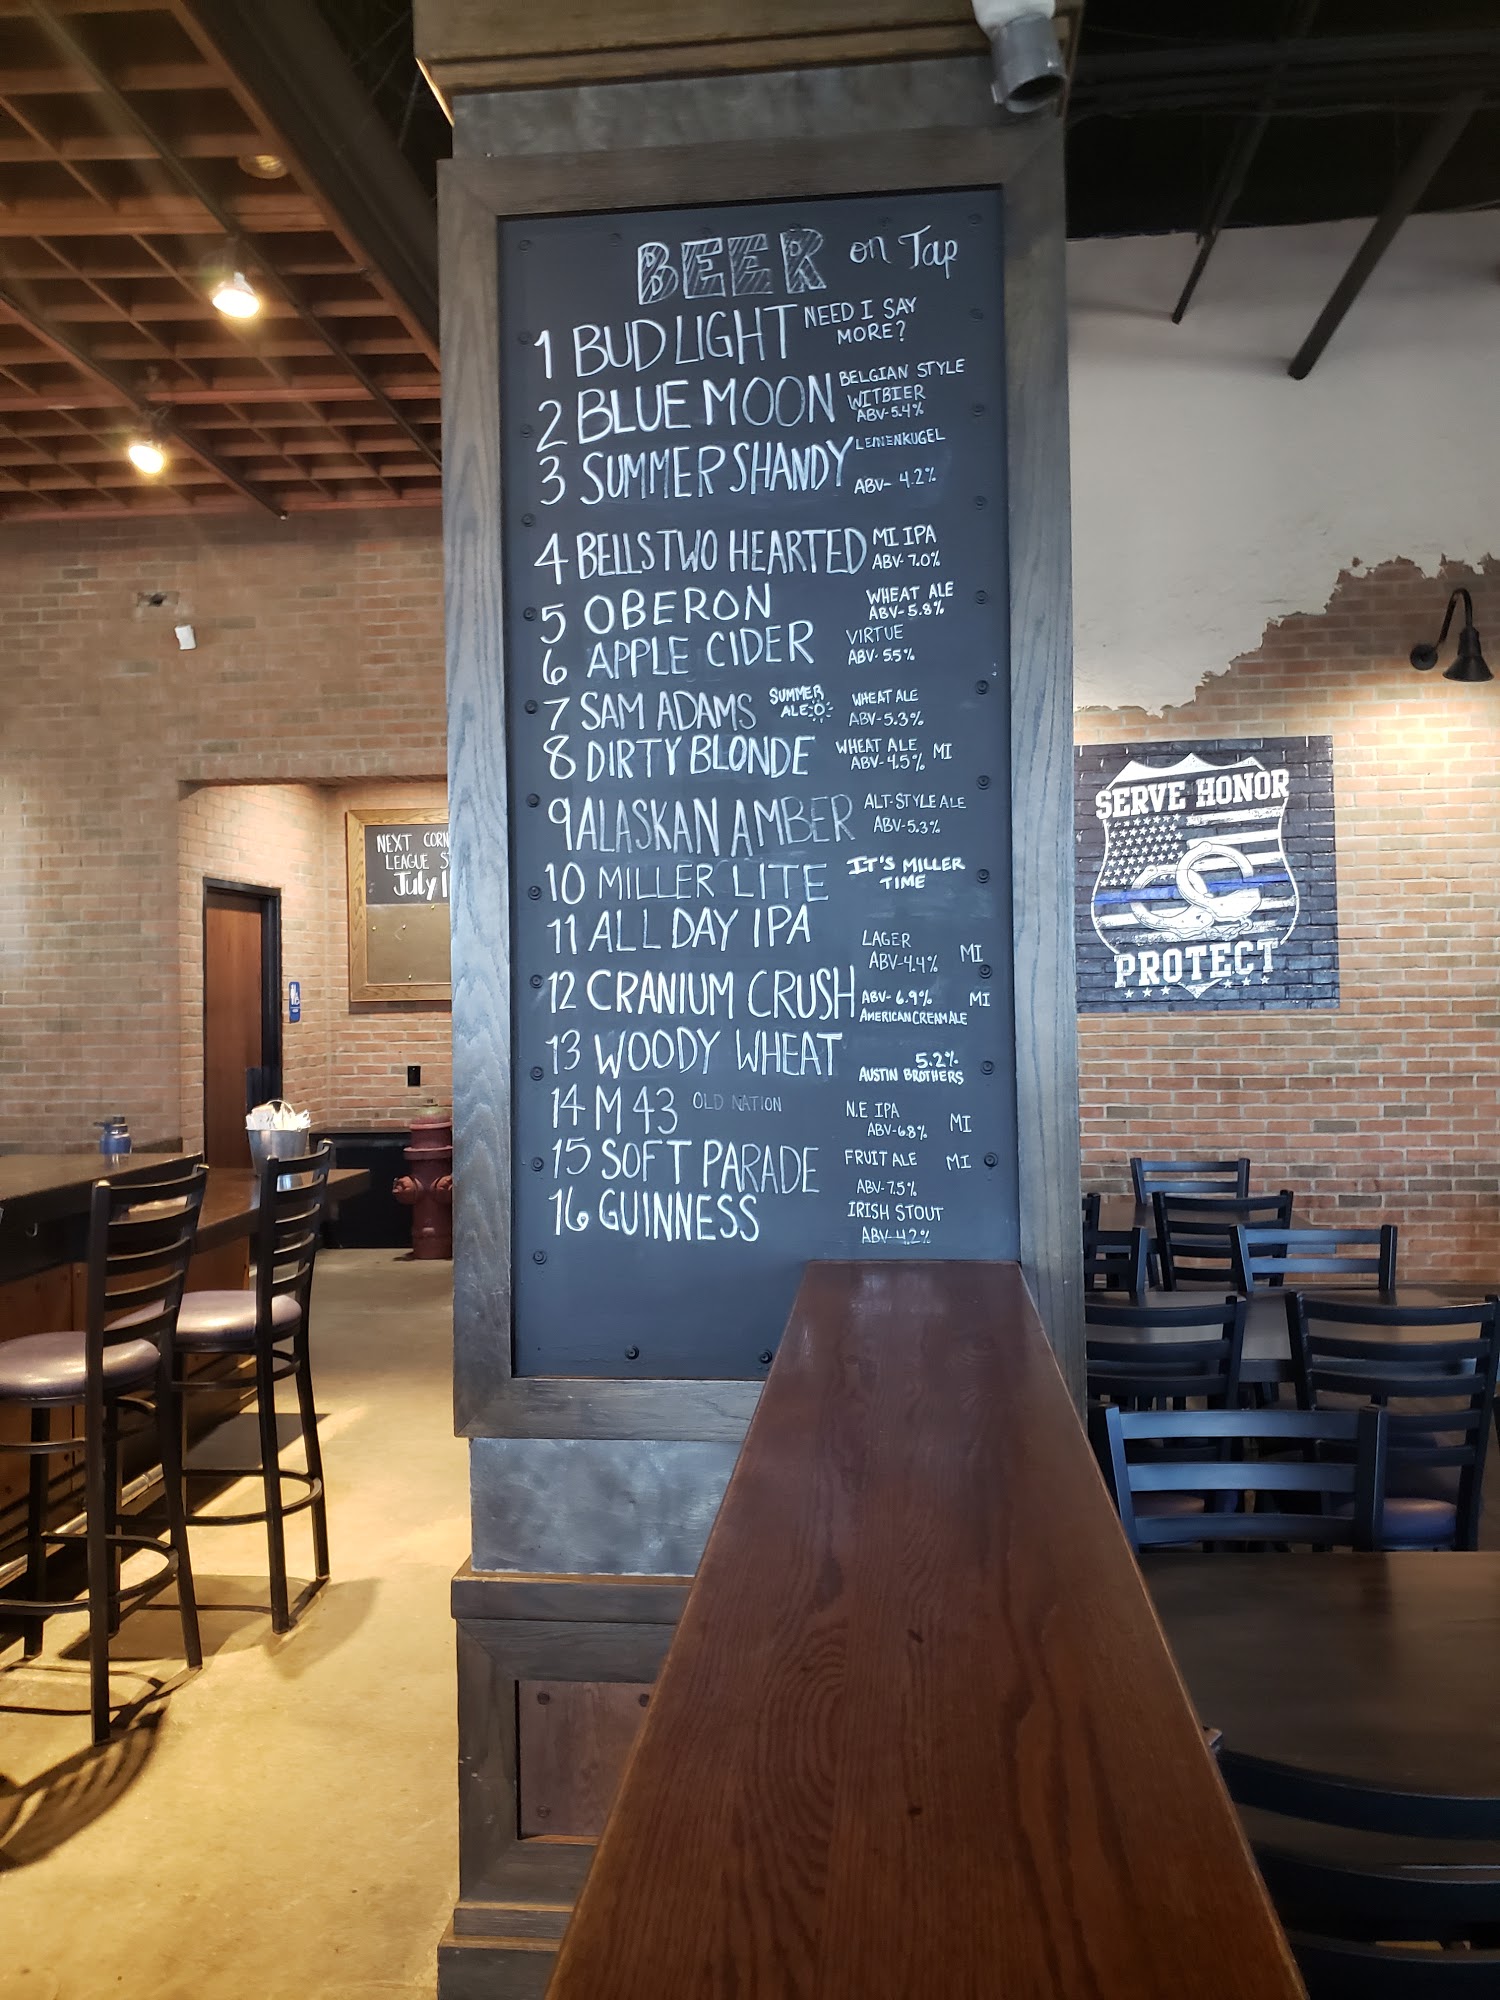 BEER on Tap
1 BUD LIGHT NEED I SAY
MORE?
2 BLUE MOON BELGIAN STYLE
WITBIER
ABV-5.4%
3 SUMMER SHANDY LEINENKUGEL
ABV- 4.2%
4 BELLS TWO HEARTED MI IPA
ABV-7.0%
5 OBERON WHEAT ALE
ABV-5.8%
6 APPLE CIDER VIRTUE
ABV-5.5%
7 SAM ADAMS SUMMER
ALE WHEAT ALE
ABV-5.3%
8 DIRTY BLONDE WHEAT ALE MI
ABV-4.5%
9 ALASKAN AMBER ALT-STYLE ALE
ABV-5.3%
10 MILLER LITE IT'S MILLER
TIME
11 ALL DAY IPA LAGER
ABV-4.4% MI
12 CRANIUM CRUSH ABV-6.9% MI
AMERICAN CREAM ALE
13 WOODY WHEAT 5.2%
AUSTIN BROTHERS
14 M43 OLD NATION N.E IPA MI
ABV-6.8%
15 SOFT PARADE FRUIT ALE MI
ABV-7.5%
16 GUINNESS IRISH STOUT
ABV-4.2%
NEXT CORN
LEAGUE S
July 1
SERVE HONOR
PROTECT